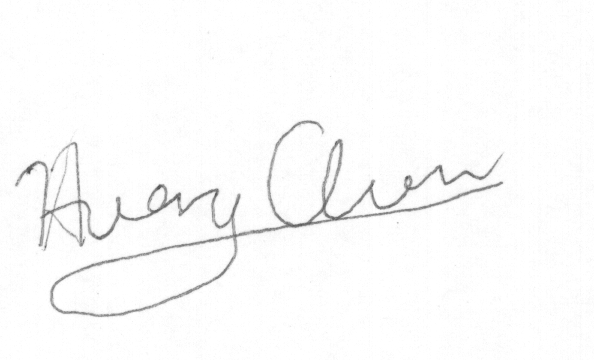 Avery Chen